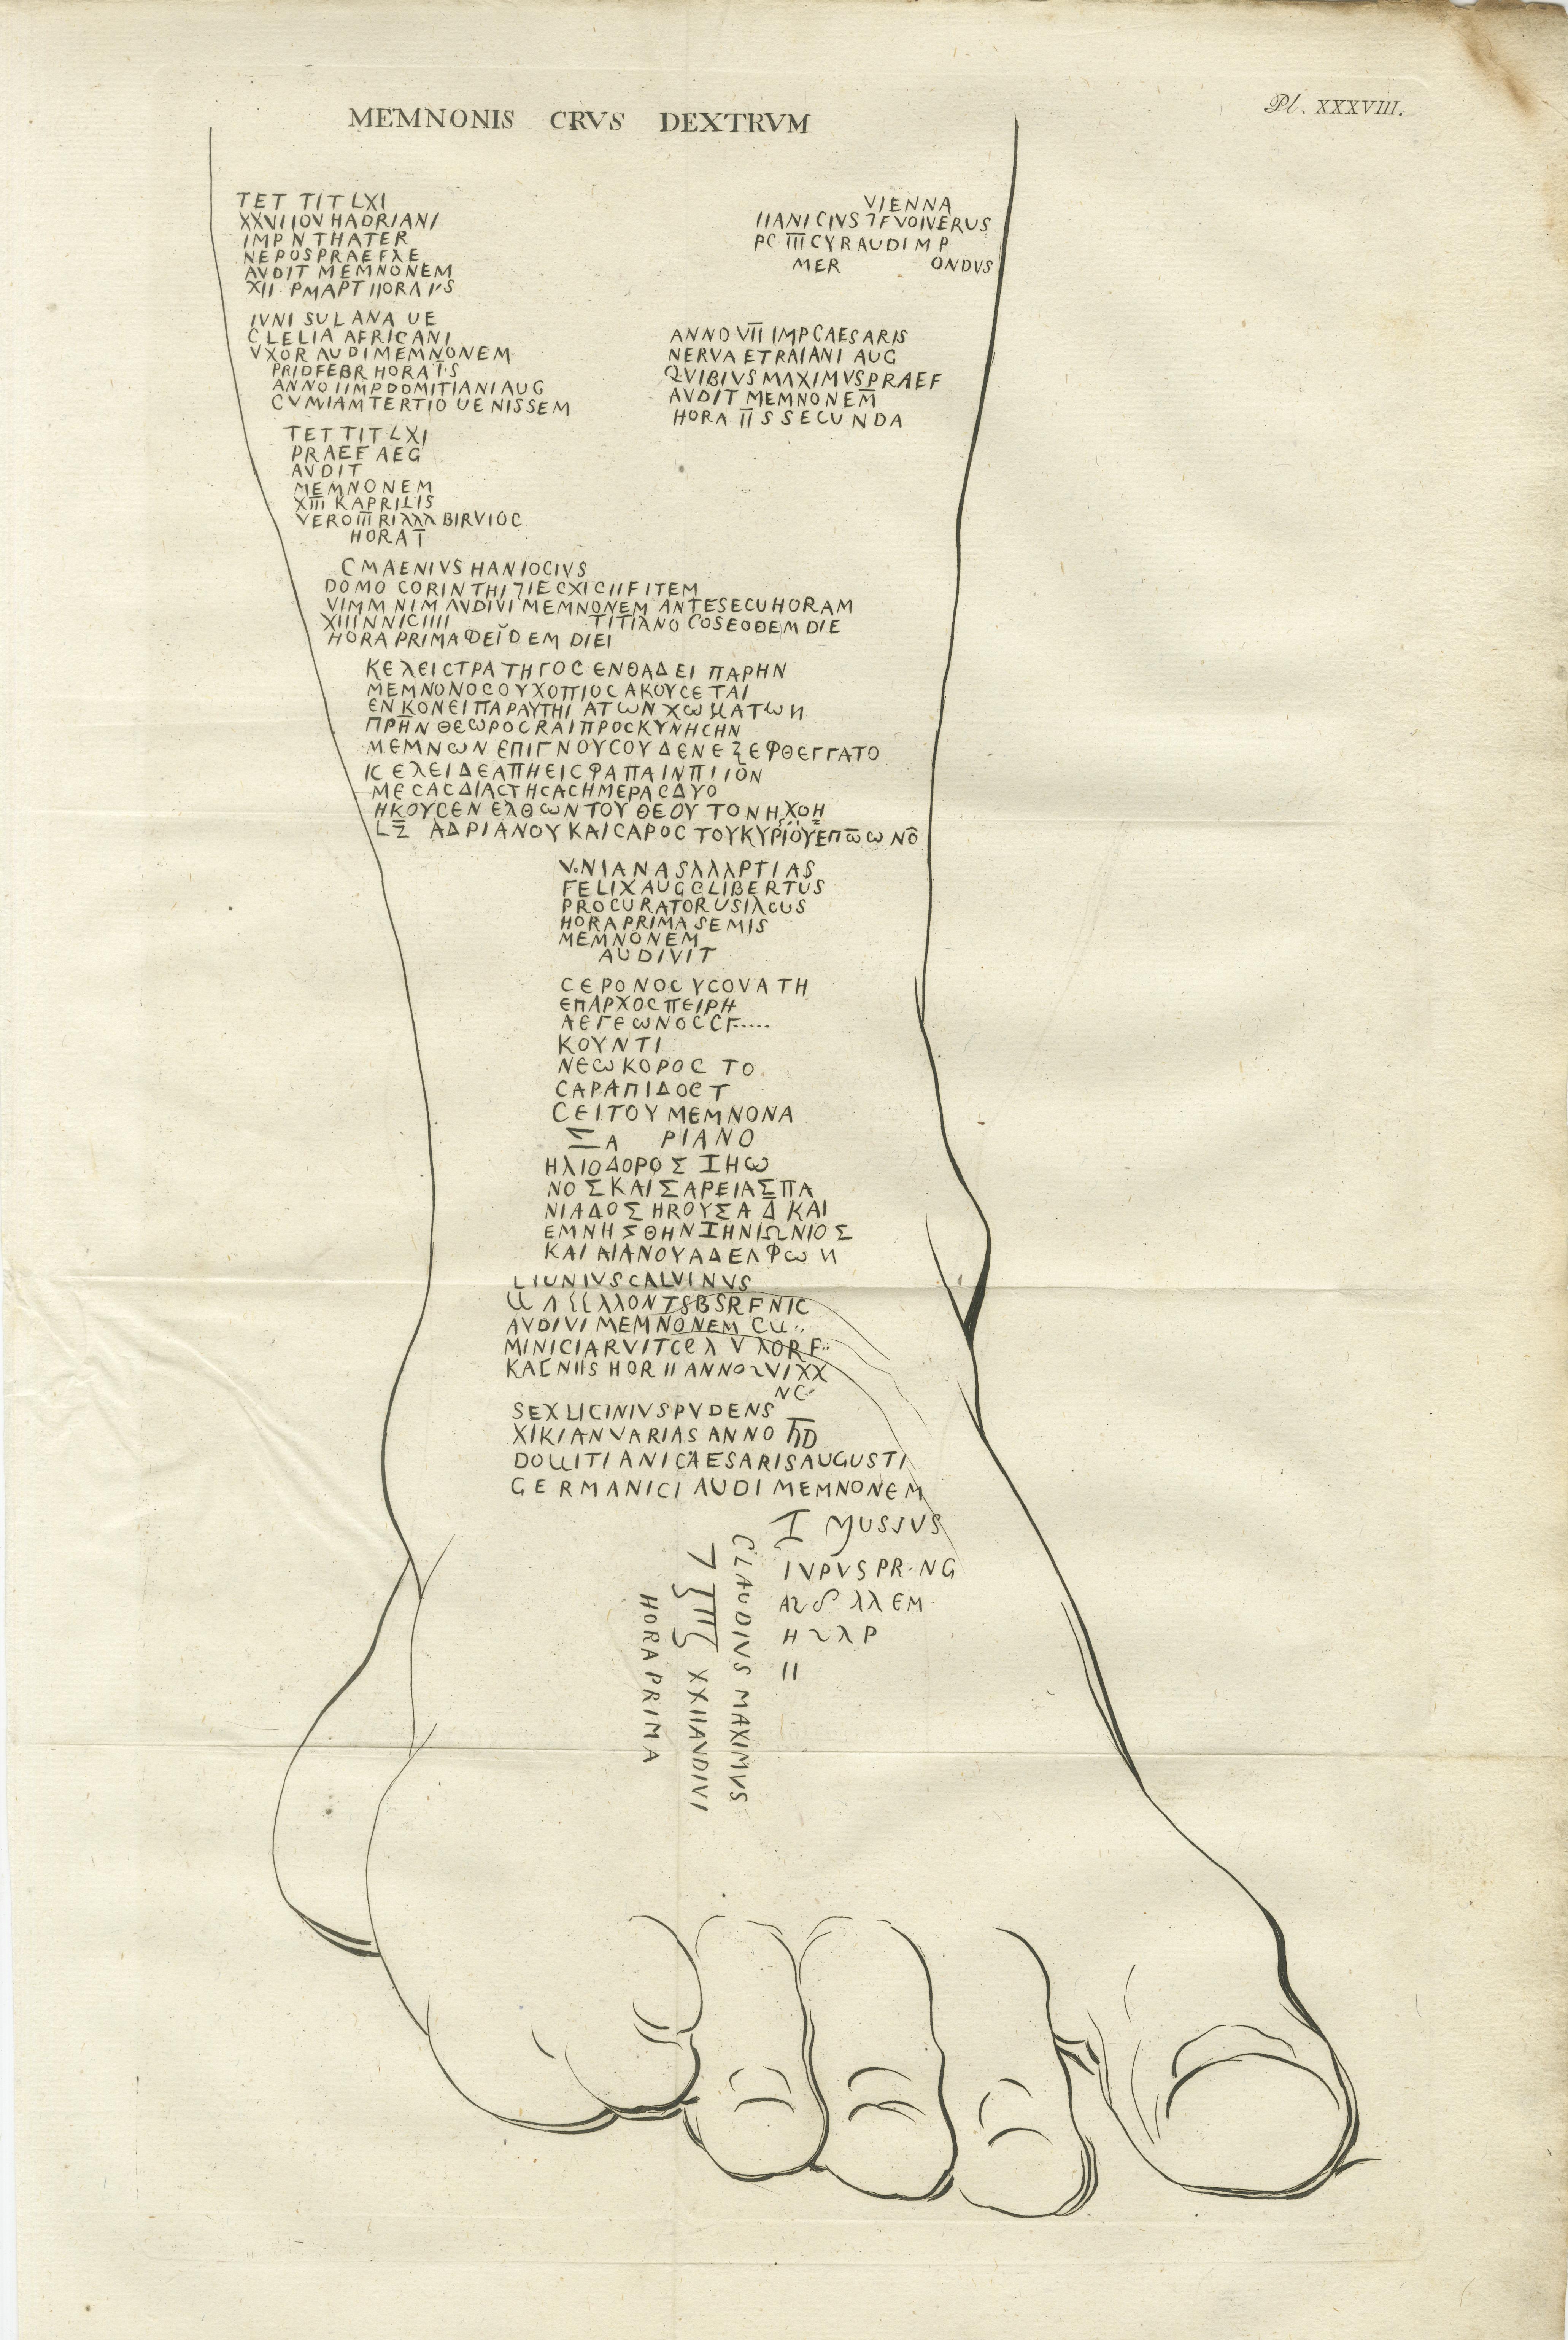 MEMNONIS CRVS DEXTRVM
Pl. XXXVIII.
TET TIT LXI
XXVIIOV HADRIANI
IMP N THATER
NEPOSPRAEFΛE
AVDIT MEMNONEM
XII PMAPT IIORA
IVNI SULANA UE
CLELIA AFRICANI
VXOR AUDIMEMNONEM
PRIDFEBR HORA I·S
ANNO IIMPDOMITIANI AUG
CVMIAMTERTIO UENISSEM
TET TIT LXI
PRAEF AEG
AVDIT
MEMNONEM
XIII KAPRILIS
VEROIII BIRVIOC
HORA I
VIENNA
IIANICIVS 7FVOIVERUS
PC III CYRAUDIMP
MER ONDVS
ANNO VII IMPCAESARIS
NERVA ETRAIANI AUG
QVIBIVS MAXIMVSPRAEF
AVDIT MEMNONEM
HORA II S SECUNDA
CMAENIVS HANIOCIVS
DOMO CORINTHI 7IECXICIIFITEM
VIMM NIM ΛVDIVI MEMNONEM ANTESECUHORAM
XIIINNICIIII TITIΛNO COSEODEM DIE
HORA PRIMA ΦEIDEM DIEI
ΚΕΛΕΙCΤΡΑΤΗΓΟC ΕΝΘΑΔΕΙ ΠΑΡΗΝ
ΜΕΜΝΟΝΟCΟΥΧΟΠΙΟC ΑΚΟΥCΕΤΑΙ
ΕΝΚΟΝΕΙΠΑΡΑΥΤΗΙ ΑΤωΝ ΧωΜΑΤωΝ
ΠΡΗΝ ΘΕωΡΟCRΑΙΠΡΟCΚΥΝΗCΗΝ
ΜΕΜΝωΝ ΕΠΙΓΝΟΥCΟΥΔΕΝΕΞΕΦΘΕΓΓΑΤΟ
ΙCΕΛΕΙΔΕΑΠΗΕΙCΦΑΠΑΙΝΠΙΙΟΝ
ΜΕCΑCΔΙΑCΤΗCΑCΗΜΕΡΑCΔΥΟ
ΗΚΟΥCΕΝ ΕΛΘωΝΤΟΥ ΘΕΟΥ ΤΟΝΗΧΟΗ
LΖ ΑΔΡΙΑΝΟΥ ΚΑΙCΑΡΟC ΤΟΥΚΥΡΙΟΥΕΠωωΝΟ
V.NIANASΛΛΛPTIAS
FELIXAUGCLIBERTUS
PROCURATORUSIΛCUS
HORAPRIMA SEMIS
MEMNONEM
AUDIVIT
CΕΡΟΝΟC ΥCΟVΑΤΗ
ΕΠΑΡΧΟC ΠΕΙΡΗ
ΑΕΓΕωΝΟCCΓ.....
ΚΟΥΝΤΙ
ΝΕωΚΟΡΟC ΤΟ
CΑΡΑΠΙΔΟC Τ
CΕΙΤΟΥ ΜΕΜΝΟΝΑ
ΞΑ ΡΙΑΝΟ
ΗΛΙΟΔΟΡΟΣ ΙΗω
ΝΟΣΚΑΙΣΑΡΕΙΑΣΠΑ
ΝΙΑΔΟΣ ΗRΟΥΣΑ Δ ΚΑΙ
ΕΜΝΗΣΘΗΝΙΗΝΙΩΝΙΟΣ
ΚΑΙ ΑΙΑΝΟΥΑΔΕΛΦωΝ
LIUNIVSCALVINVS
ΛΛONTSBSRFNIC
AVDIVI MEMNONEM CU..
MINICIARVITCEΛ V ΛORF..
KAΓNIIS HOR II ANNO VIXX
NC
SEXLICINIVSPVDENS
XIKIANVARIAS ANNO
DOMITIANICAESARISAUGUSTI
GERMANICI AUDI MEMNONEM
I MUSIVS
IVPVSPR·NG
ΛΛEM
II
CLAUDIVS MAXIMVS
XXIIAVDIVI
HORA PRIMA